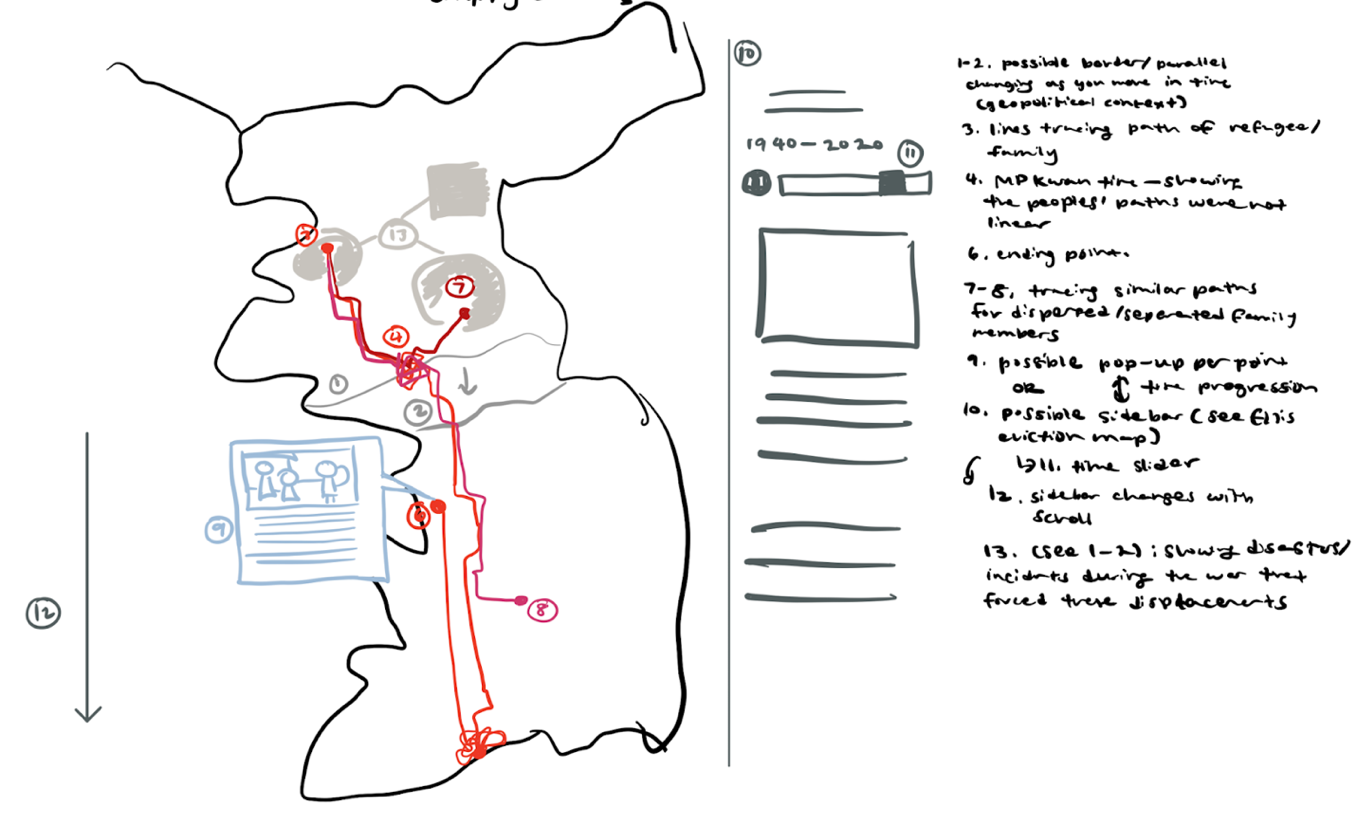 10
1-2. possible border/parallel
changing as you move in time
(geopolitical context)
1940-2020
11
3. lines tracing path of refugee/
family
4. MP Kwan time - showing
the peoples' paths were not
linear
6. ending point.
7-8. tracing similar paths
for dispersed/separated family
members
9. possible pop-up per point
OR ↕ time progression
10. possible sidebar (see Ellis
eviction map)
↳11. time slider
12. sidebar changes with
scroll
13. (see 1-2): showing disasters/
incidents during the war that
forced these displacements
13
3
7
4
1
2
6
9
12
8